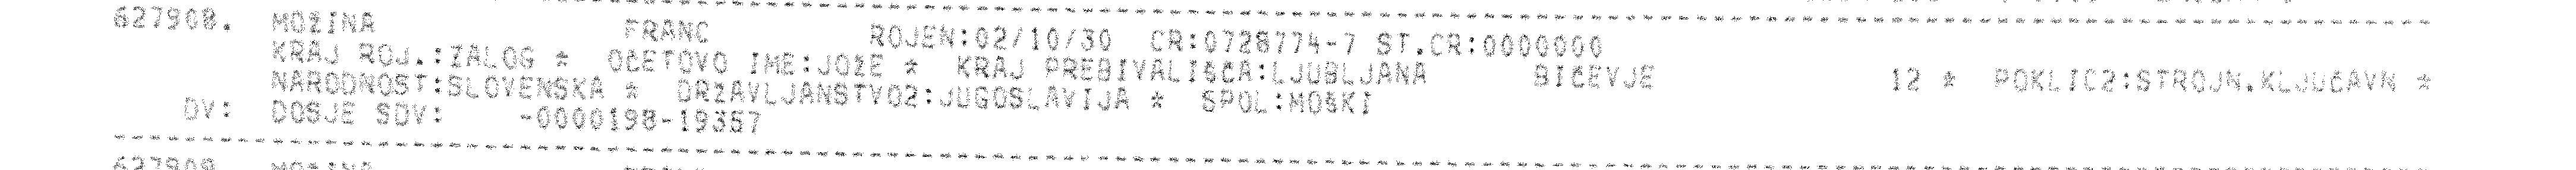 627908. MOŽINA FRANC ROJEN:02/10/30 CR:0728774-7 ST.CR:0000000
KRAJ ROJ.:ZALOG * OČETOVO IME:JOŽE * KRAJ PREBIVALIŠČA:LJUBLJANA BIČEVJE 12 * POKLIC2:STROJN.KLJUČAVN *
NARODNOST:SLOVENSKA * DRŽAVLJANSTVO2:JUGOSLAVIJA * SPOL:MOŠKI
DV: DOSJE SDV: -0000198-19357
627909 MOŽINA